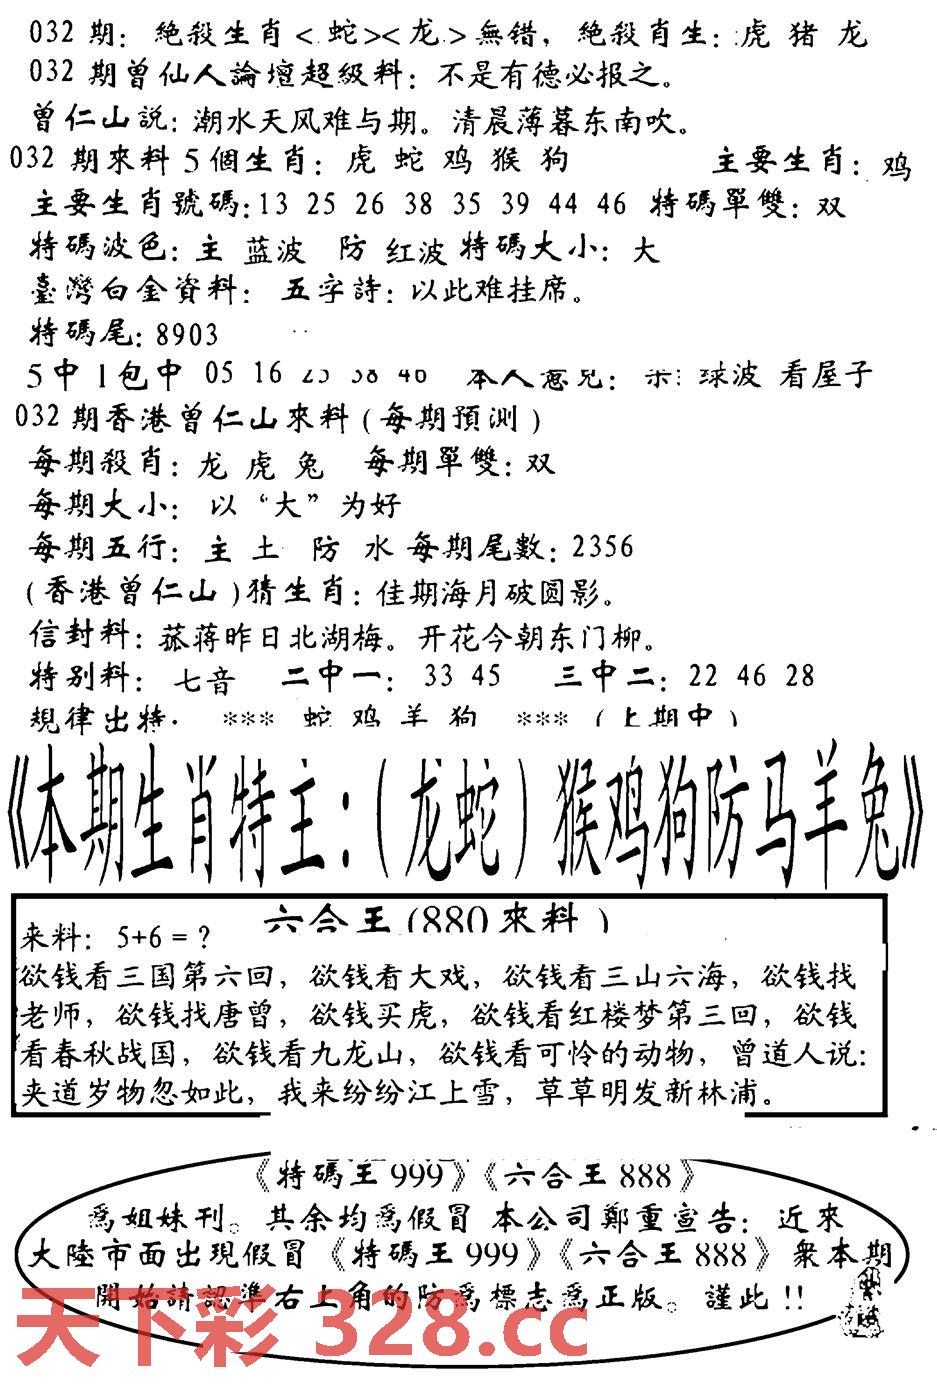 032 期: 絶殺生肖<蛇><龙>無错, 絶殺肖生: 虎 猪 龙
032 期曾仙人論壇超級料: 不是有德必报之。
曾仁山説: 潮水天风难与期。清晨薄暮东南吹。
032 期來料 5 個生肖: 虎 蛇 鸡 猴 狗 主要生肖: 鸡
主要生肖號碼: 13 25 26 38 35 39 44 46 特碼單雙: 双
特碼波色: 主 蓝波 防 红波 特碼大小: 大
臺灣白金資料: 五字詩: 以此难挂席。
特碼尾: 8903
5 中 1 包中 05 16 25 38 46 本人意見: 球波 看屋子
032 期香港曾仁山來料 (每期預測)
每期殺肖: 龙 虎 兔 每期單雙: 双
每期大小: 以“大”为好
每期五行: 主 土 防 水 每期尾數: 2356
(香港曾仁山)猜生肖: 佳期海月破圆影。
信封料: 菰蒋昨日北湖梅。开花今朝东门柳。
特别料: 七音 二中一: 33 45 三中二: 22 46 28
規律出特: *** 蛇 鸡 羊 狗 *** (上期中)
《本期生肖特主:(龙蛇)猴鸡狗防马羊兔》
六合王(880來料)
来料: 5+6=?
欲钱看三国第六回, 欲钱看大戏, 欲钱看三山六海, 欲钱找
老师, 欲钱找唐曾, 欲钱买虎, 欲钱看红楼梦第三回, 欲钱
看春秋战国, 欲钱看九龙山, 欲钱看可怜的动物, 曾道人说:
夹道岁物忽如此, 我来纷纷江上雪, 草草明发新林浦。
《特碼王 999》《六合王 888》
爲姐妹刊。其余均爲假冒 本公司鄭重宣告: 近來
大陸市面出現假冒《特碼王 999》《六合王 888》衆本期
開始請認準右上角的防爲標志爲正版。謹此!!
天下彩 328.cc